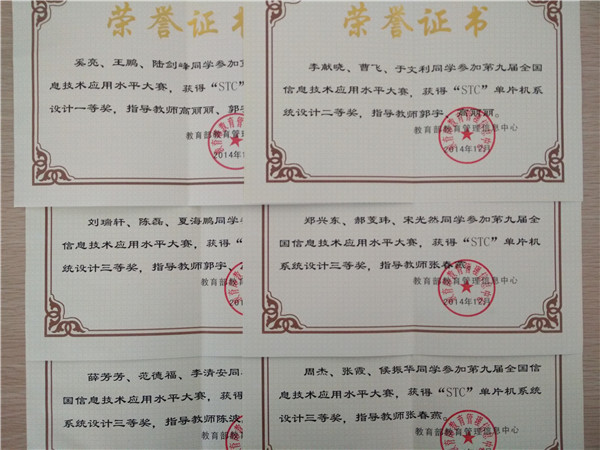 荣誉证书
奚亮、王鹏、陆剑峰同学参加
息技术应用水平大赛，获得“STC”
设计一等奖，指导教师高丽丽、郭宇
教育部教育管
2014年1
荣誉证书
李献晓、曹飞、于文利同学参加第九届全国
信息技术应用水平大赛，获得“STC”单片机系
统设计二等奖，指导教师郭宇、高丽丽。
教育部教育管理信息中心
2014年12月
刘瑞轩、陈磊、夏海鹏同学
信息技术应用水平大赛，获得
系统设计三等奖，指导教师郭宇、
教育部教育
2014
郑兴东、郝荽玮、宋光然同学参加第九届全
国信息技术应用水平大赛，获得“STC”单片机
系统设计三等奖，指导教师张春燕。
教育部教育管理信息中心
2014年12月
薛芳芳、范德福、李清安同
国信息技术应用水平大赛，获得
系统设计三等奖，指导教师陈波
教育部教
周杰、张霞、侯振华同学参加第九届全国信
息技术应用水平大赛，获得“STC”单片机系统
设计三等奖，指导教师张春燕。
教育部教育管理信息中心